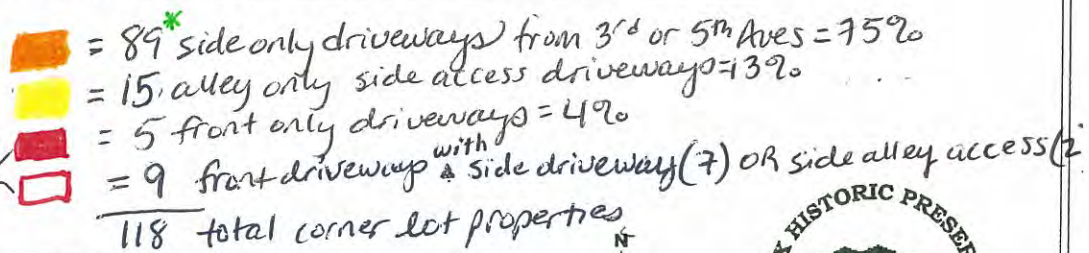 = 89* side only driveways from 3rd or 5th Aves = 75%
= 15 alley only side access driveways = 13%
= 5 front only driveways = 4%
= 9 front driveway with side driveway (7) OR side alley access (2
118 total corner lot properties
N
HISTORIC PRESER